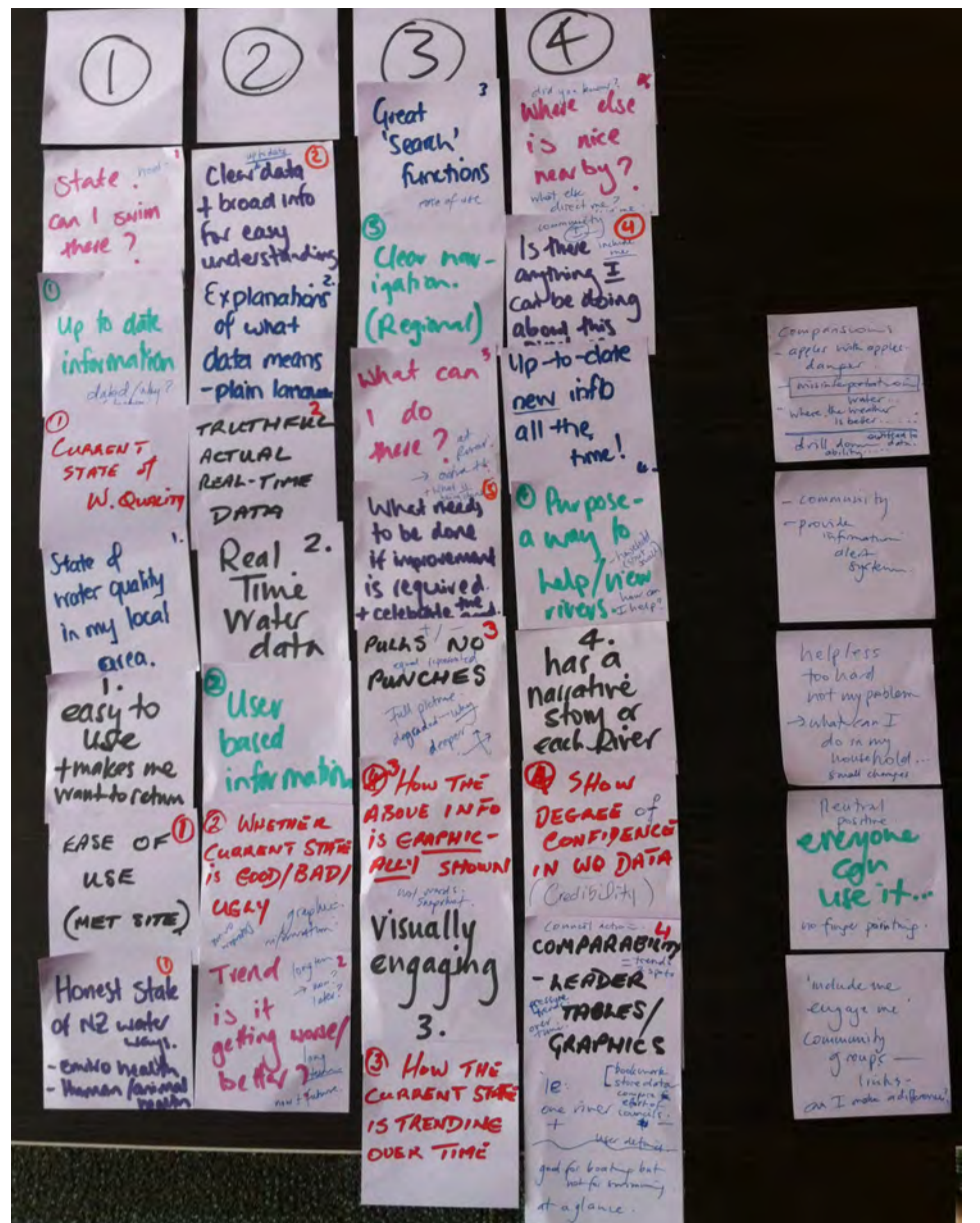 1
State.
can I swim
there?
1
Up to date
information
dated/why?
1
CURRENT
STATE of
W. QUALITY
1.
State of
water quality
in my local
area.
1.
easy to
use
+makes me
want to return
1
EASE OF
USE
(MET SITE)
1
Honest State
of NZ water
ways.
- enviro health
- Human/animal
health
2
2
Clear data
+ broad info
for easy
understanding
2.
Explanations
of what
data means
- plain language
2
TRUTHFUL
ACTUAL
REAL-TIME
DATA
2.
Real
Time
Water
data
2
User
based
information
2 WHETHER
CURRENT STATE
is GOOD/BAD/
UGLY
graphic
information
Trend 2
long term
→ now
later?
is it
getting worse/
better?
long
now + future
3
3
Great
'Search'
functions
ease of use
3
Clear nav-
igation.
(Regional)
3
What can
I do
there?
at
River
3
What needs
to be done
if improvement
is required.
+ celebrate the good.
+/-
3
PULLS NO
PUNCHES
full picture
degraded - why
deeper
3
HOW THE
ABOVE INFO
is GRAPHIC-
ALLY SHOWN
not words.
snapshot.
Visually
engaging
3.
3 HOW THE
CURRENT STATE
IS TRENDING
OVER TIME
4
did you know?
Where else
is nice
nearby?
what else
direct me?
community
4
Is there
include
me
anything I
can be doing
about this
Up-to-date
new info
all the
time!
4.
4 Purpose-
a way to
help/view
rivers
household
how can
I help?
4.
has a
narrative
story of
each River
4 SHOW
DEGREE of
CONFIDENCE
IN WQ DATA
(Credibility)
4
COMPARABILITY
= trends
- LEADER
TABLES/
GRAPHICS
over
time
ie:
bookmark
store data
compare
one river
councils.
+
user defined
good for boating but
not for swimming
at a glance.
Comparisons
- apples with apples
danger
- misinterpretation
water...
- where the weather
is better.....
drill down data
ability.....
- community
- provide
information
alert
system.
helpless
too hard
not my problem
→ what can I
do in my
household...
small changes
Neutral
positive
everyone
can
use it...
no finger pointing.
'include me
engage me'
Community
groups —
links -
can I make a difference?